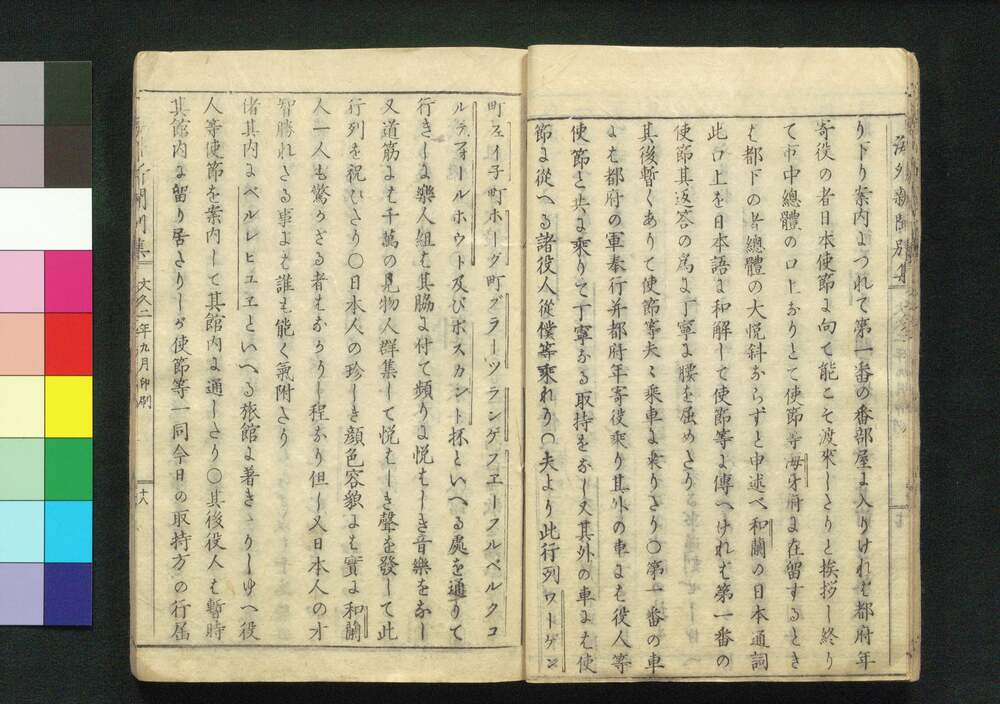 海外新聞別集
り下り案内よつれて第一番の番部屋よ入りけれバ都府年
寄役の者日本使節よ向て能こそ渡来しさりと挨拶し終り
て市中總體の口上なりとて使節等海牙府よ在留するとき
も都下の者總體の大悦斜ならずと申述べ和蘭の日本通詞
此口上を日本語よ和解して使節等よ傳へけれバ第一番の
使節其返答の爲よ丁寧よ腰を屈めさり
其後暫くありて使節等夫々乗車よ来りさり〇第一番の車
よも都府の軍奉行并都府年寄役乗り其外の車よも役人等
使節と共よ乗りて丁寧なる取持をなし又其外の車よも使
節よ従へる諸役人從僕等乘れり〇夫より此行列ワーゲン
町
イ子町ホーグ町グラーツランゲフエールフルベルタコ
ルテフォールホウト及びボスカント抔といへる處を通りて
行きしよ樂人組も其脇よ付て頻りよ悦もしき音樂をなし
又道筋よも千萬の見物人群集して悦もしき聲を發して此
行列を祝ひさり〇日本人の珍しき顔色容貌よも實よ和蘭
人一人も驚かざる者もなかりし程なり但し又日本人の才
智勝れさる事よも誰も能く氣附さり
偖其内よベルレヒュエといへる旅館よ着きさりしゆへ役
人等使節を案内して其館内よ通しさり〇其後役人も暫時
其館内よ留り居さりしが使節等一同今日の取持方の行届
新聞別集
文久二年九月印刷
十八